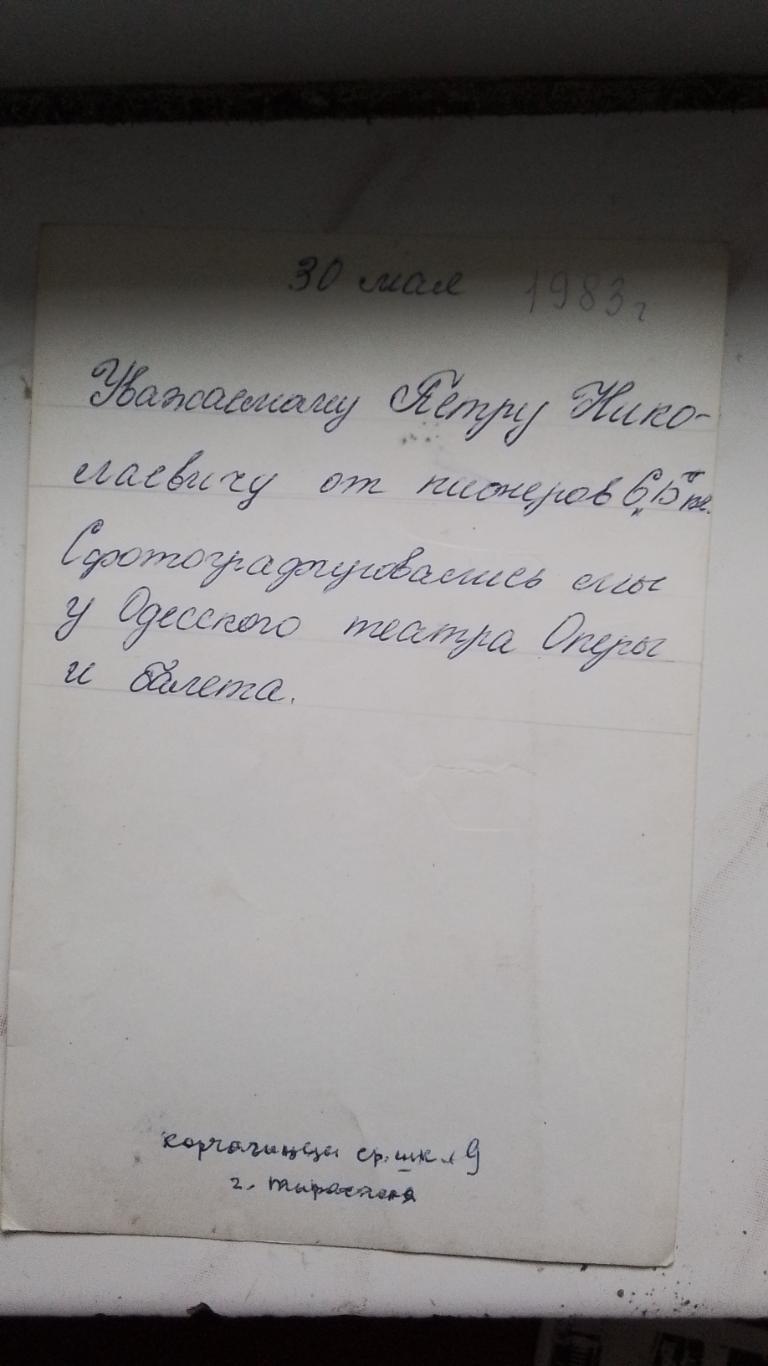 30 мая 1983 г
Уважаемому Петру Нико-
лаевичу от пионеров 6 "Б" кл.
Сфотографировались мы
у Одесского театра Оперы
и балета.
корчагинцы ср. шк. 9
г. Тирасполя